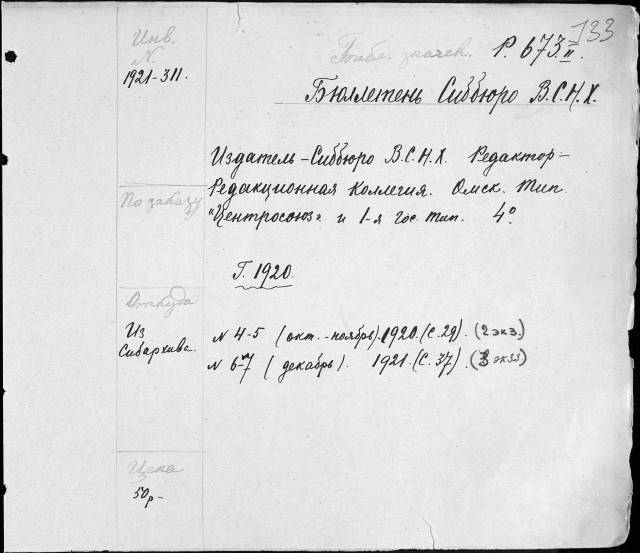 133
Инв.
N.
1921-311.
Библ. значек. Р. 673 II.
Бюллетень Сиббюро В.С.Н.Х.
Издатель - Сиббюро В.С.Н.Х. Редактор -
Редакционная коллегия. Омск. Тип.
По заказу
"Центросоюз" и 1-я Гос. тип. 4°.
Г. 1920.
Откуда
Из
Сибархива.
N 4-5 (окт. - ноябрь). 1920. (С. 29). (2 экз.)
N 6-7 (декабрь). 1921. (С. 37). (3 экзз)
Цена
50 р-